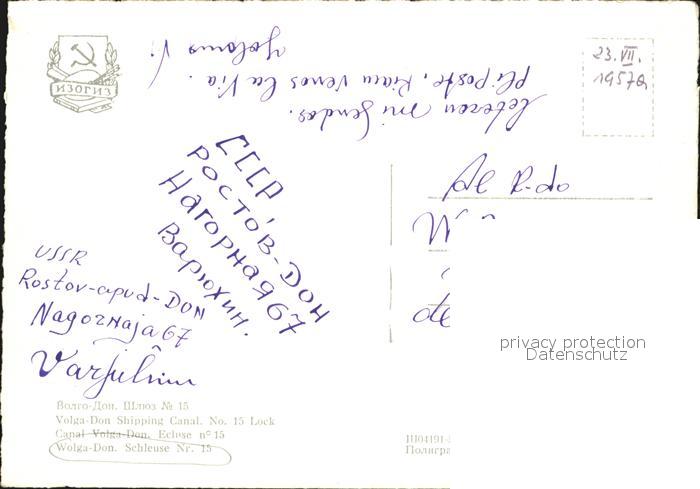 ИЗОГИЗ
23. VII.
1957a
Leteron mi sendos.
pli poste, kiam venos la Via.
Al R-do
СССР
РОСТОВ-ДОН
НАГОРНАЯ 67
ВАРЮХИН.
USSR
Rostov-apud-DON
Nagornaja 67
Varjuĥin
privacy protection
Datenschutz
Волго-Дон. Шлюз № 15
Volga-Don Shipping Canal. No. 15 Lock
Canal Volga-Don. Ecluse n° 15
Wolga-Don. Schleuse Nr. 15
Ш04191-
Полигра